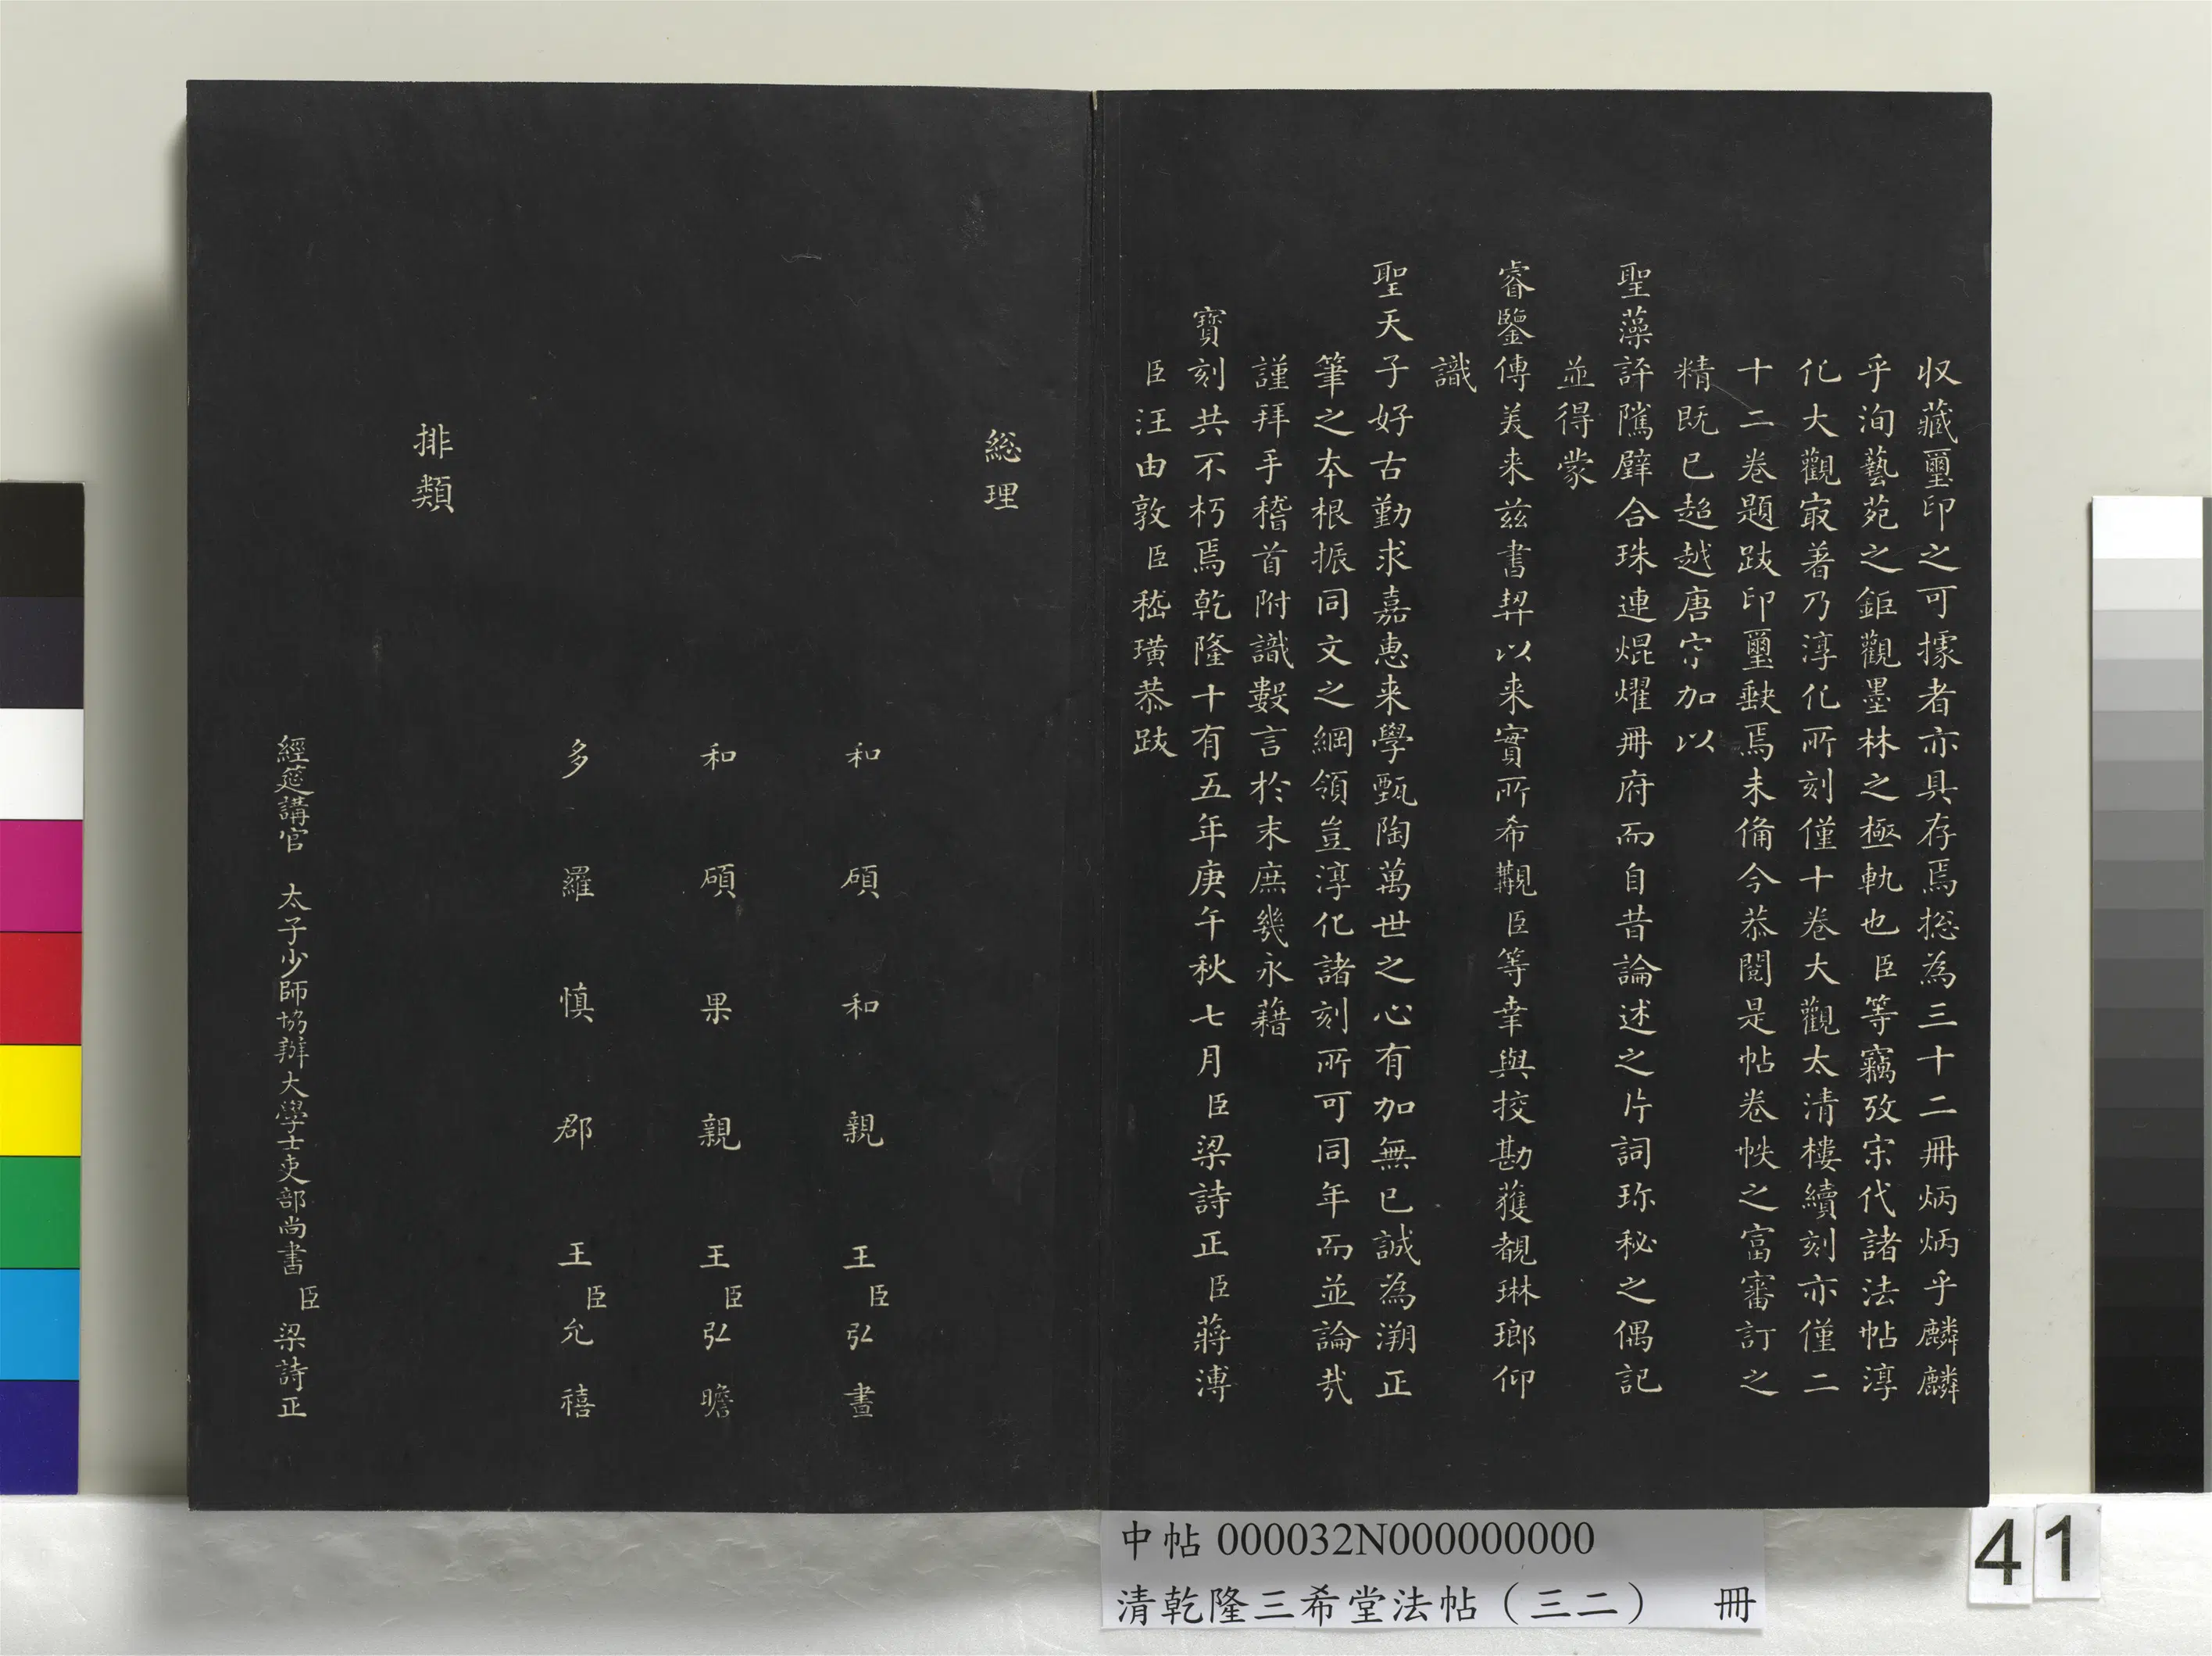 収藏璽印之可據者亦具存焉捴為三十二冊炳炳乎麟麟
乎洵藝苑之鉅觀墨林之極軌也臣等竊攷宋代諸法帖淳
化大觀冣著乃淳化所刻僅十卷大觀太清樓續刻亦僅二
十二卷題跋印璽缺焉未備今恭閱是帖卷帙之富審訂之
精既已超越唐宋加以
聖藻評隲璧合珠連焜燿冊府而自昔論述之片詞珎秘之偶記
並得蒙
睿鑒傳美来兹書契以来實所希覯臣等幸與挍勘獲覩琳瑯仰
識
聖天子好古勤求嘉惠来學甄陶萬世之心有加無已誠為溯正
筆之本根振同文之綱領豈淳化諸刻所可同年而並論㢤
謹拜手稽首附識數言於末庶幾永藉
寶刻共不朽焉乾隆十有五年庚午秋七月臣梁詩正臣蔣溥
臣汪由敦臣嵇璜恭跋
総理
和碩和親王臣弘晝
和碩果親王臣弘曕
多羅慎郡王臣允禧
排類
經筵講官 太子少師協辦大學士吏部尚書臣梁詩正
中帖 000032N000000000
清乾隆三希堂法帖（三二） 冊
41